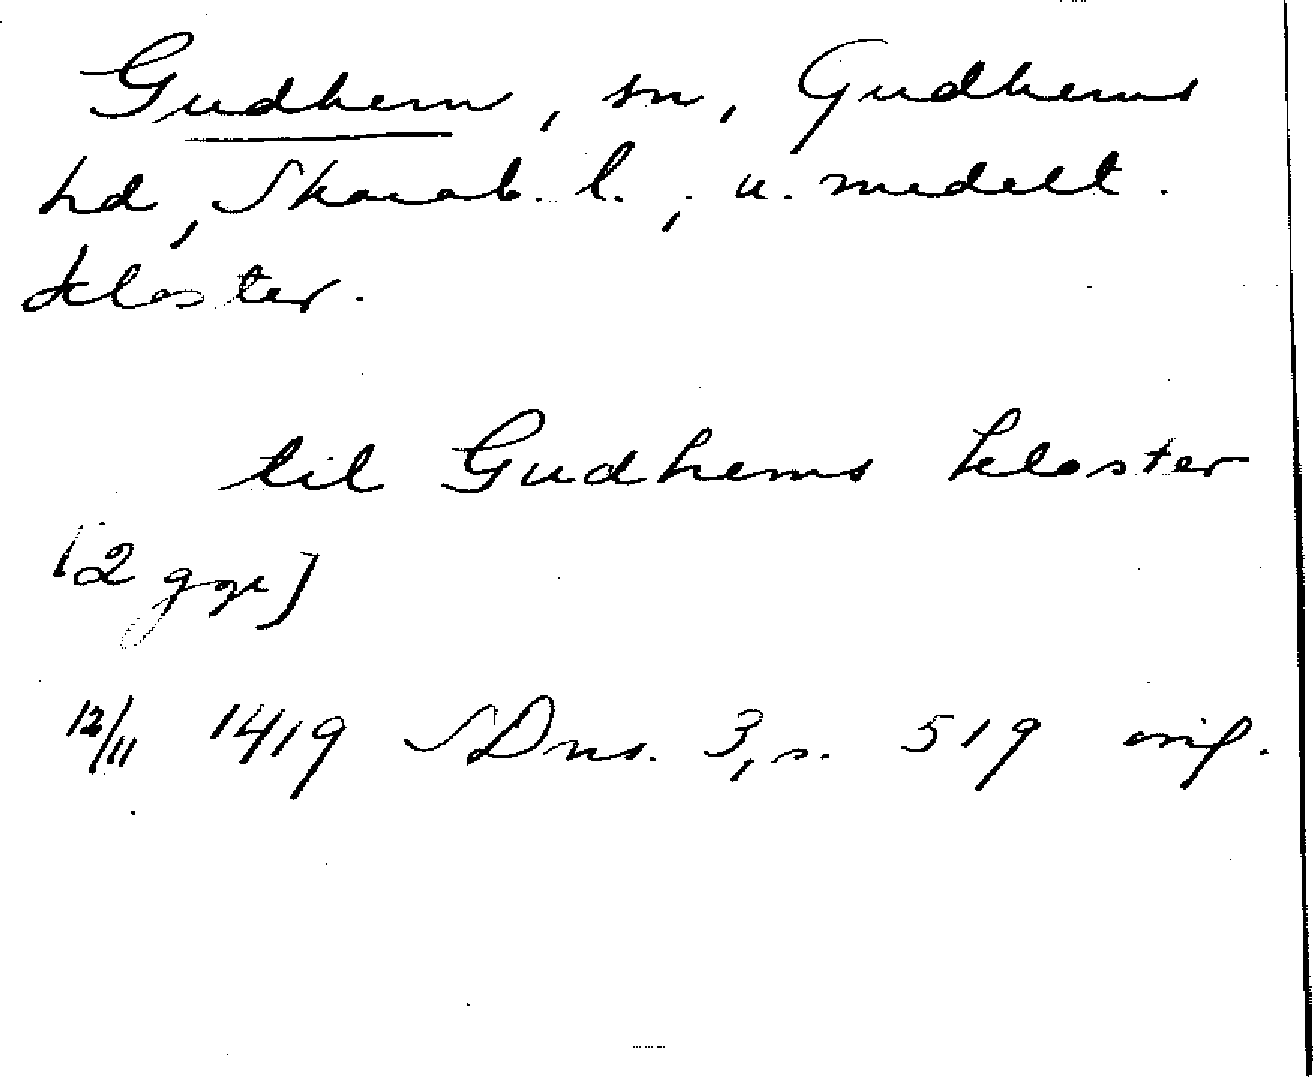 Gudhem, sn, Gudhems
hd, Skarab. l., u. medelt.
kloster.
til Gudhems kloster
[2 ggr]
12/11 1419 SDns. 3, s. 519 orig.